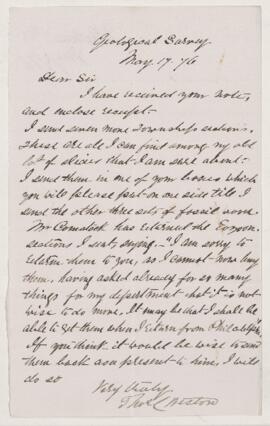 Geological Survey
May 17 - 76
Dear Sir
I have received your note,
and enclose receipt.
I send seven more Townships sections,
these are all I can find among my old
lot of slices that I am sure about.
I send them in one of your boxes which
you will please put on one side till I
send the other three sets of fossil wood.
Mr Comstock has returned the Eozoon
sections I sent, saying, "I am sorry to
return them to you, as I cannot now buy
them, having asked already for so many
things for my department that it is not
wise to do more. It may be that I shall be
able to get them when I return from Philadelphia"
If you think it would be wise to send
them back as a present to him, I will
do so
Very truly
Thos C Weston